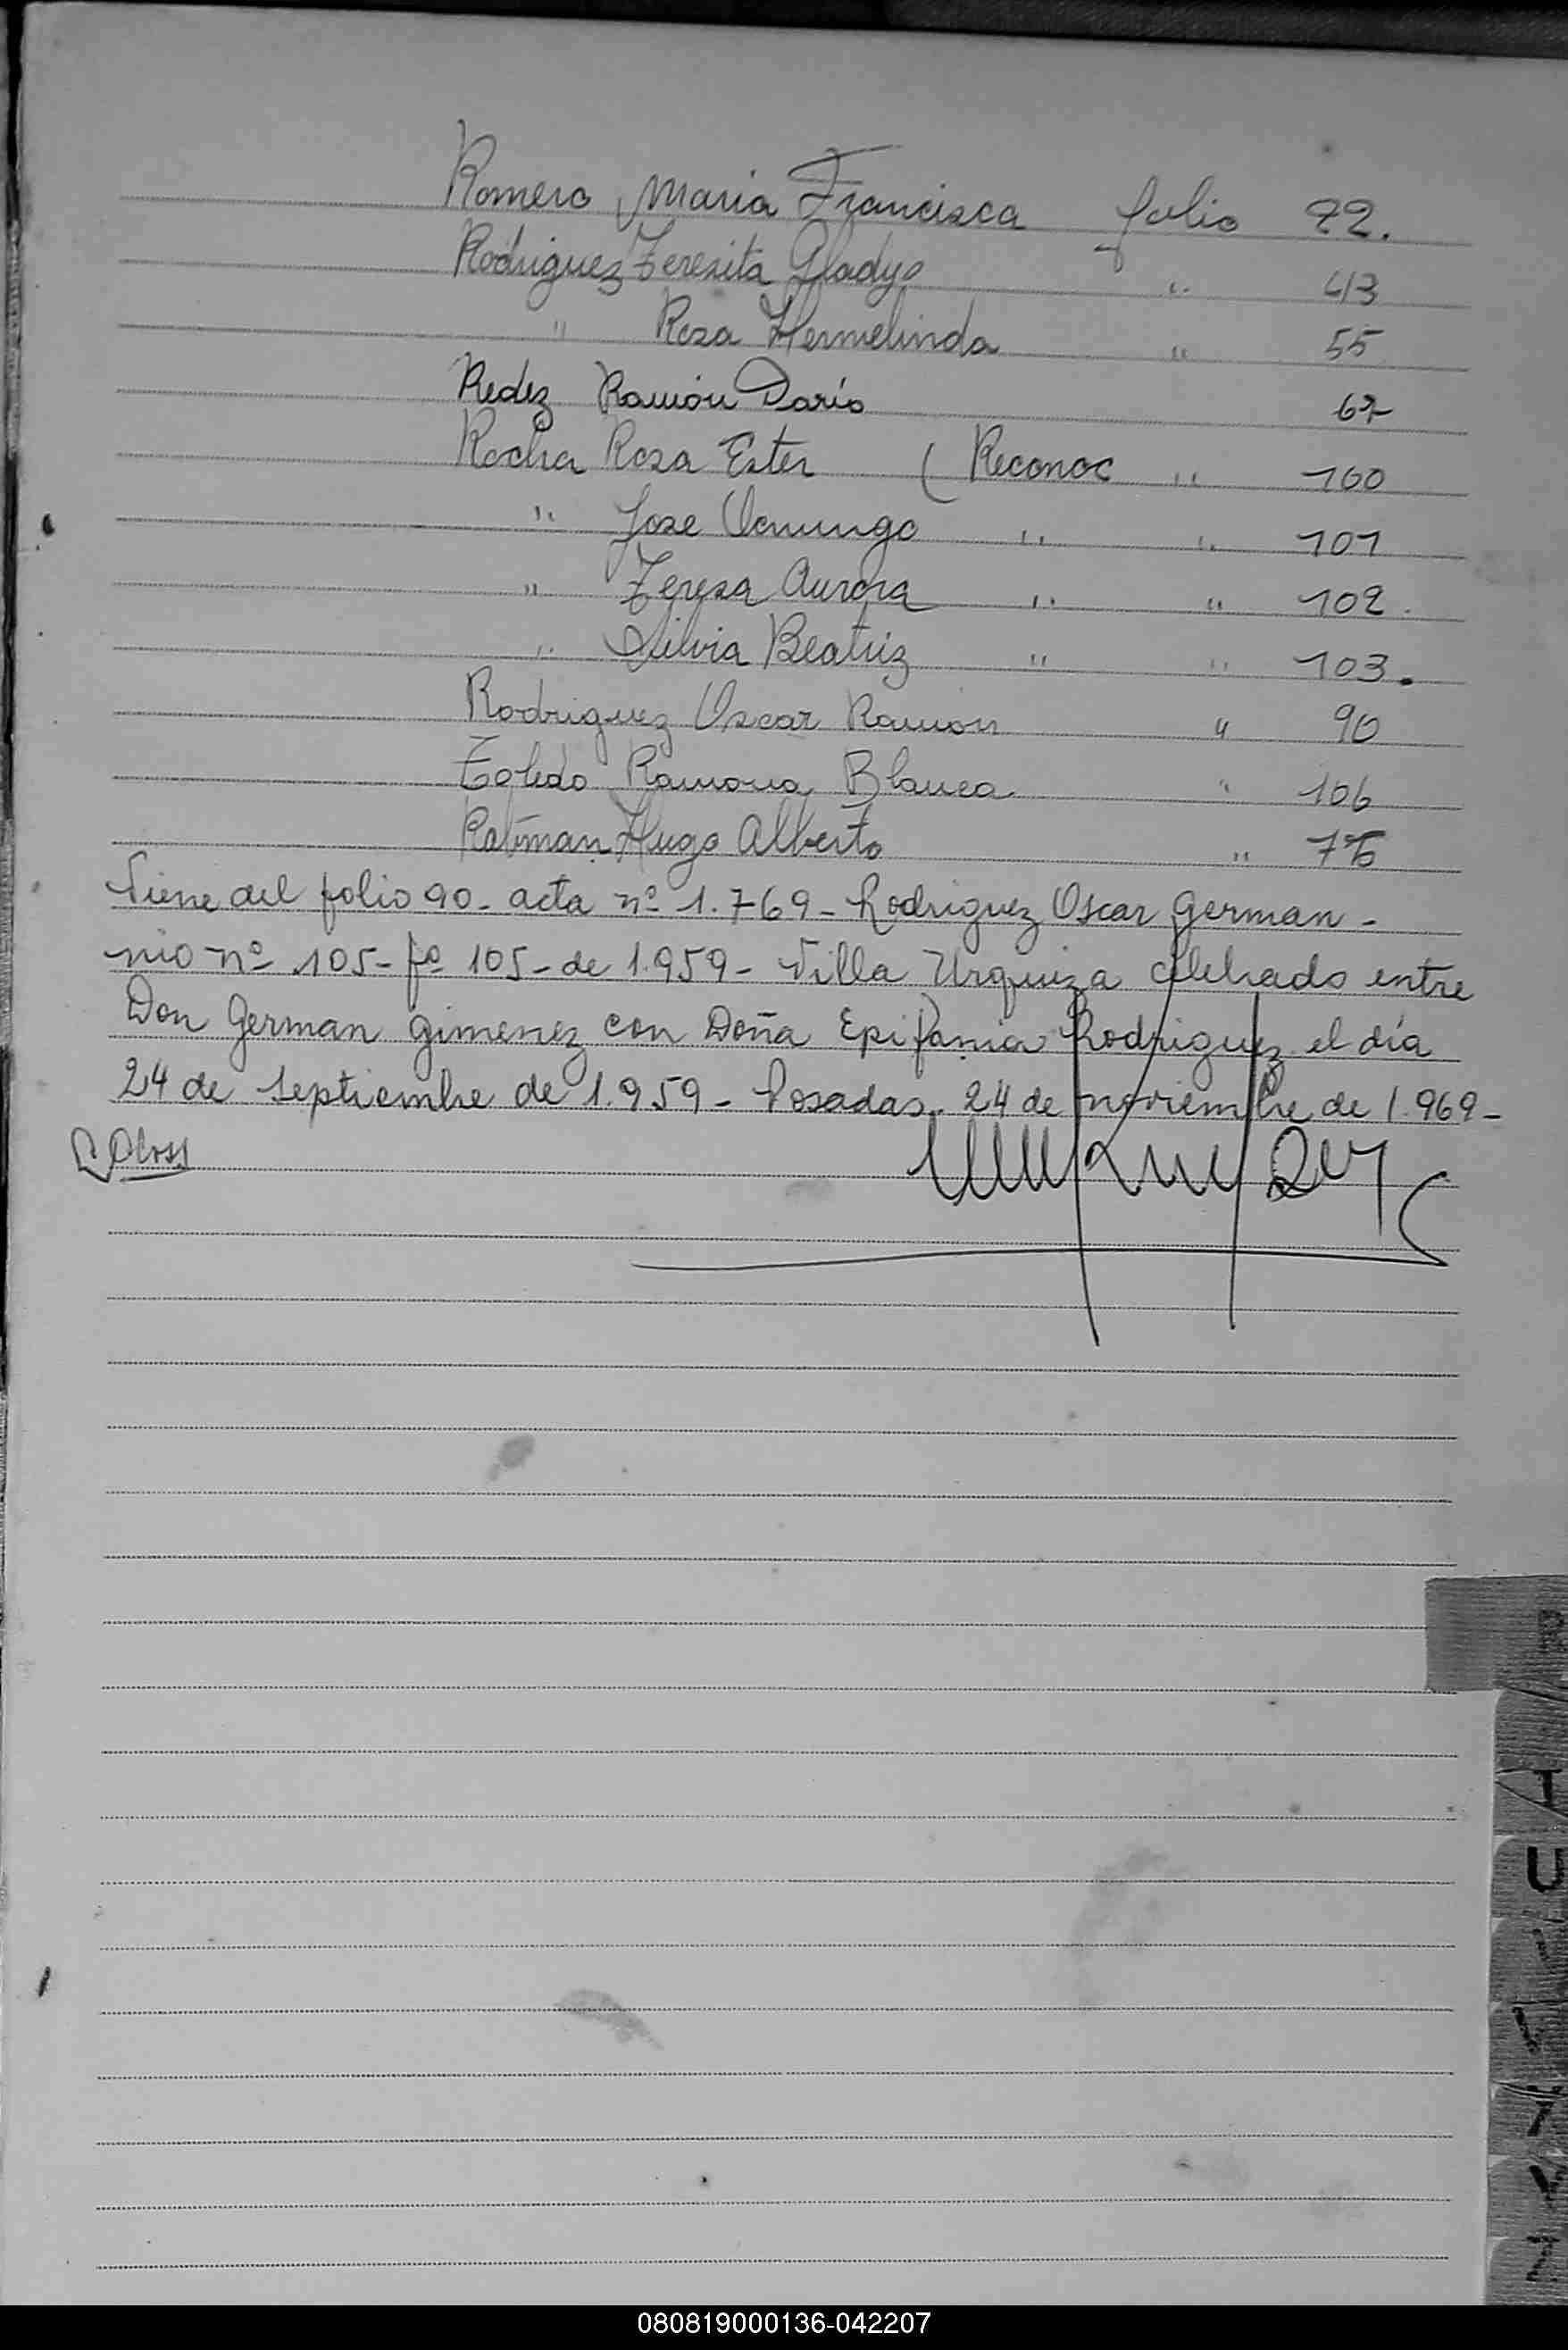 Romero Maria Francisca folio 22.
Rodriguez Teresita Gladys " 43
" Rosa Hermelinda " 55
Redez Ramón Darío 67
Rocha Rosa Ester ( Reconoc " 100
" Jose Domingo " " 101
" Teresa Aurora " " 102.
" Silvia Beatriz " " 103.
Rodriguez Oscar Ramon " 90
Toledo Ramona Blanca " 106
Ratman Hugo Alberto " 76
Viene del folio 90- acta nº 1.769- Rodriguez Oscar German -
nio nº 105- fº 105- de 1.959- Villa Urquiza celebrado entre
Don German Gimenez con Doña Epifania Rodriguez el día
24 de septiembre de 1.959- Posadas, 24 de noviembre de 1.969-
U
080819000136-042207